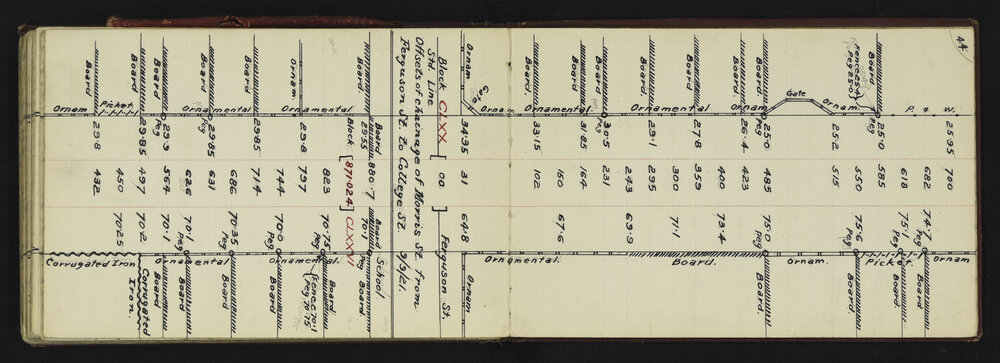 44
Ornam
Board
Picket
Board
Board
Ornamental
Peg
Board
Peg
Board
Ornam
Ornamental
Board
Board
29.8
29.85
29.9
29.85
29.85
29.8
Board
29.55
Block
432
450
497
564
626
631
686
714
744
797
823
[871.024]
880.7
CLXXVI
70.25
70.2
70.1
70.1
Peg
70.35
70.0
Peg
70.75
Peg
70.1
Peg
Board
School
Corrugated Iron
Corrugated
Iron
Ornamental
Board
Board
Board
Board
Ornamental.
Board
Fence 70.1
Peg 70.75
Board
Block CLXX
Std. Line
Offsets & chainage of Morris St. from
Ferguson St. to College St.
9/9/21.
Ferguson St.
Ornam
Gate
34.35
31
[00]
64.8
Ornam
Ornam
Ornamental
Board
Board
Board
Board
Board
Ornamental
Board
Ornam
Peg
Gate
Ornam
Board
Peg
P. & W.
33.15
31.85
30.5
Peg
29.1
27.8
26.4
25.0
25.2
25.0
25.95
102
150
164
231
243
295
300
359
400
423
485
515
550
585
618
682
700
67.6
69.9
71.1
73.4
75.0
Peg
75.6
Peg
75.1
Peg
74.2
Peg
Ornamental.
Board.
Board.
Ornam.
Board.
Picket
Board.
Ornam